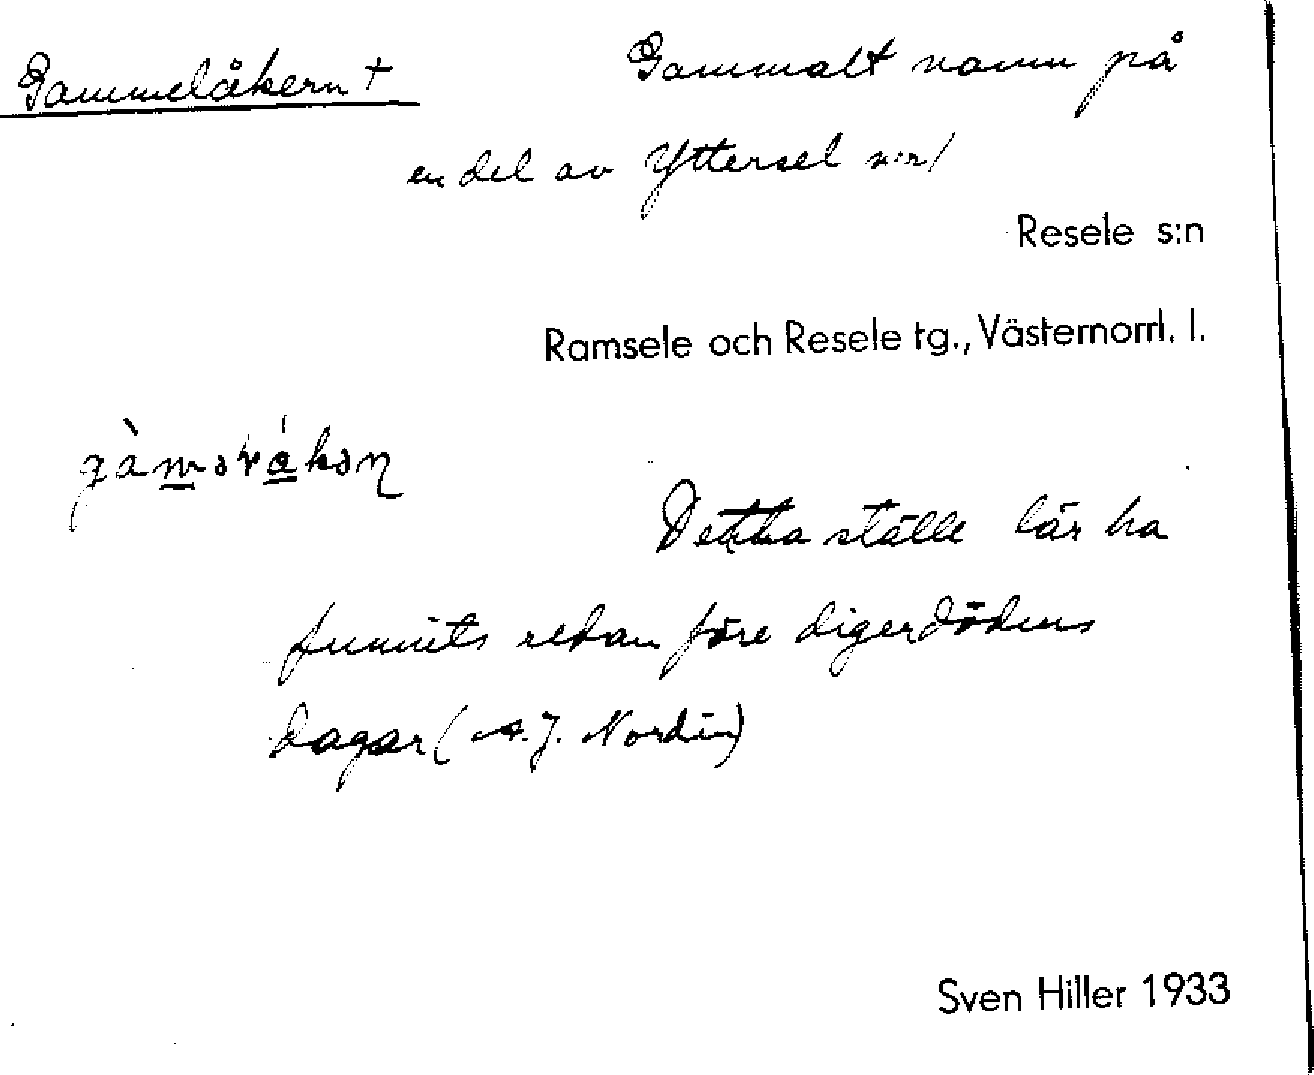 Gammelåkern +
Gammalt namn på
en del av Yttersel n:r 1
Resele s:n
Ramsele och Resele tg., Västernorrl. l.
Detta ställe lär ha
funnits redan före digerdödens
dagar (A. J. Nordin)
Sven Hiller 1933